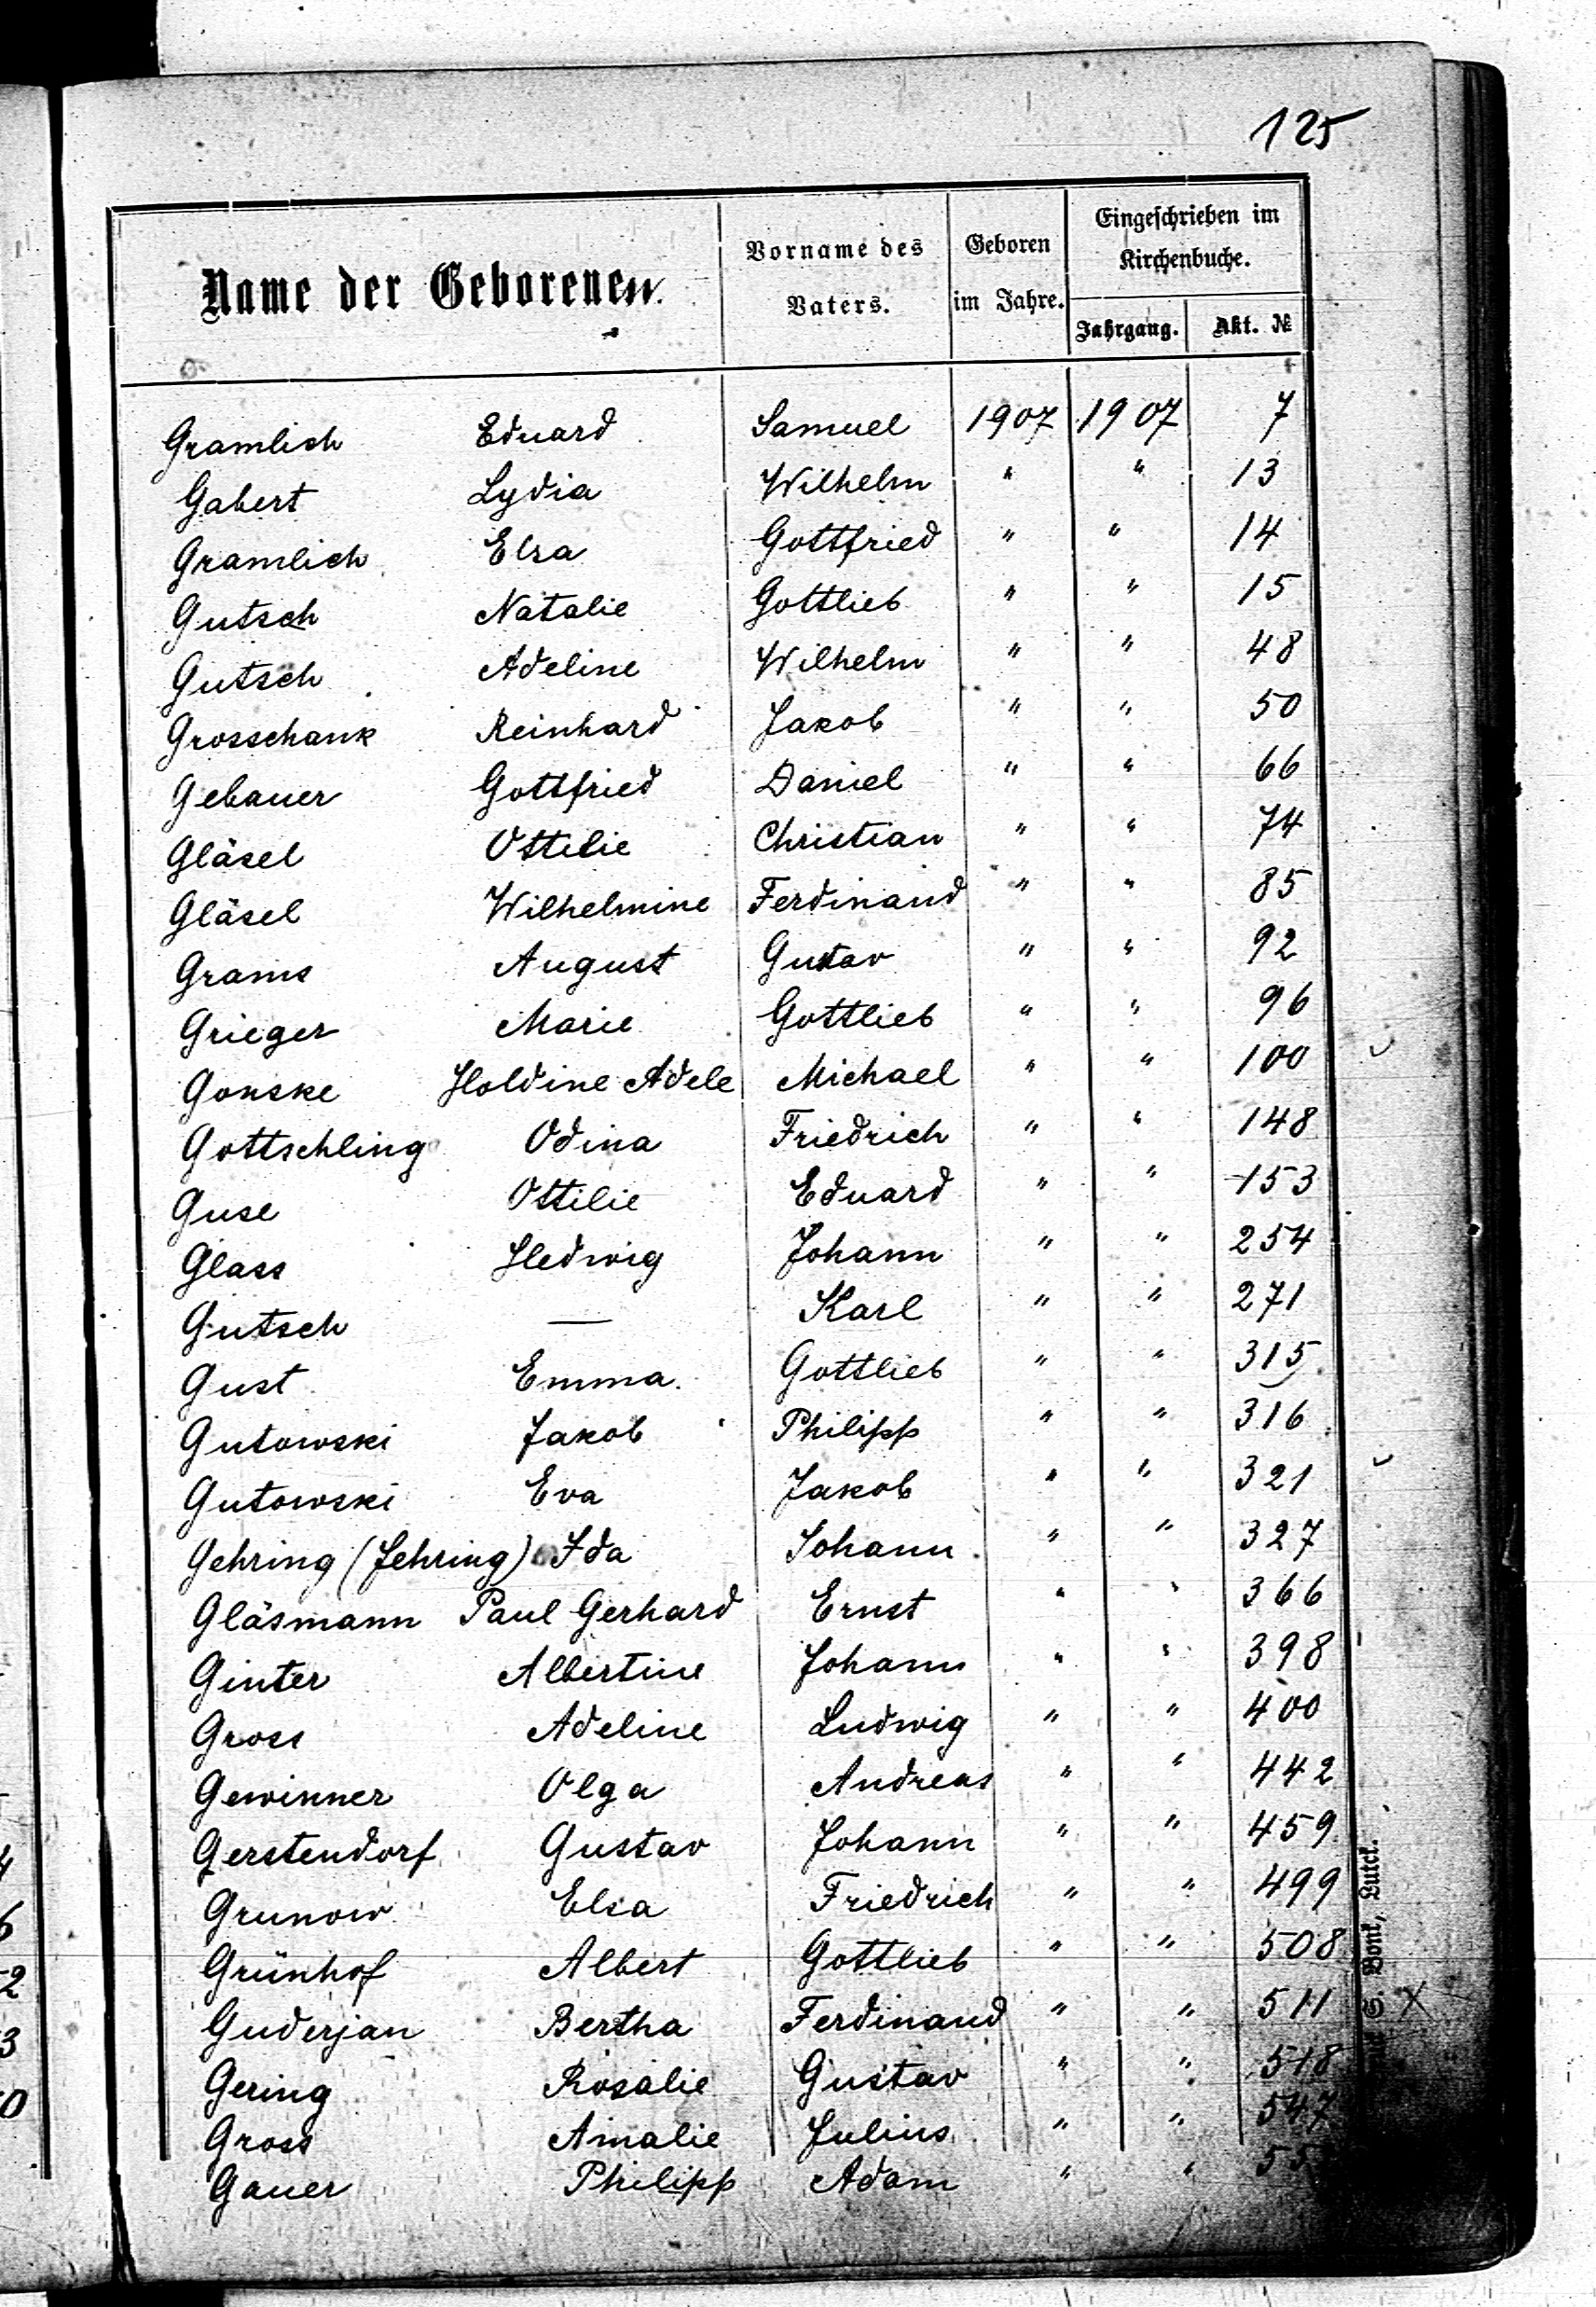 125
Name der Geborenen.
Vorname des Vaters.
Geboren im Jahre.
Eingeschrieben im Kirchenbuche.
Jahrgang. Akt. №
Gramlich Eduard Samuel 1907 1907 7
Gabert Lydia Wilhelm " " 13
Gramlich Elsa Gottfried " " 14
Gutsch Natalie Gottlieb " " 15
Gutsch Adeline Wilhelm " " 48
Grosschank Reinhard Jakob " " 50
Gebauer Gottfried Daniel " " 66
Gläsel Ottilie Christian " " 74
Gläsel Wilhelmine Ferdinand " " 85
Grams August Gustav " " 92
Grieger Marie Gottlieb " " 96
Gonske Holdine Adele Michael " " 100
Gottschling Odina Friedrich " " 148
Guse Ottilie Eduard " " 153
Glass Hedwig Johann " " 254
Gutsch — Karl " " 271
Gust Emma Gottlieb " " 315
Gutowski Jakob Philipp " " 316
Gutowski Eva Jakob " " 321
Gehring (Jehring) Ida Johann " " 327
Gläsmann Paul Gerhard Ernst " " 366
Ginter Albertine Johann " " 398
Gross Adeline Ludwig " " 400
Gewinner Olga Andreas " " 442
Gerstendorf Gustav Johann " " 459
Grunow Elsa Friedrich " " 499
Grünhof Albert Gottlieb " " 508
Guderjan Bertha Ferdinand " " 511
Gering Rosalie Gustav " " 518
Gross Amalie Julius " " 547
Gauer Philipp Adam " "
Bonk, Lutck.